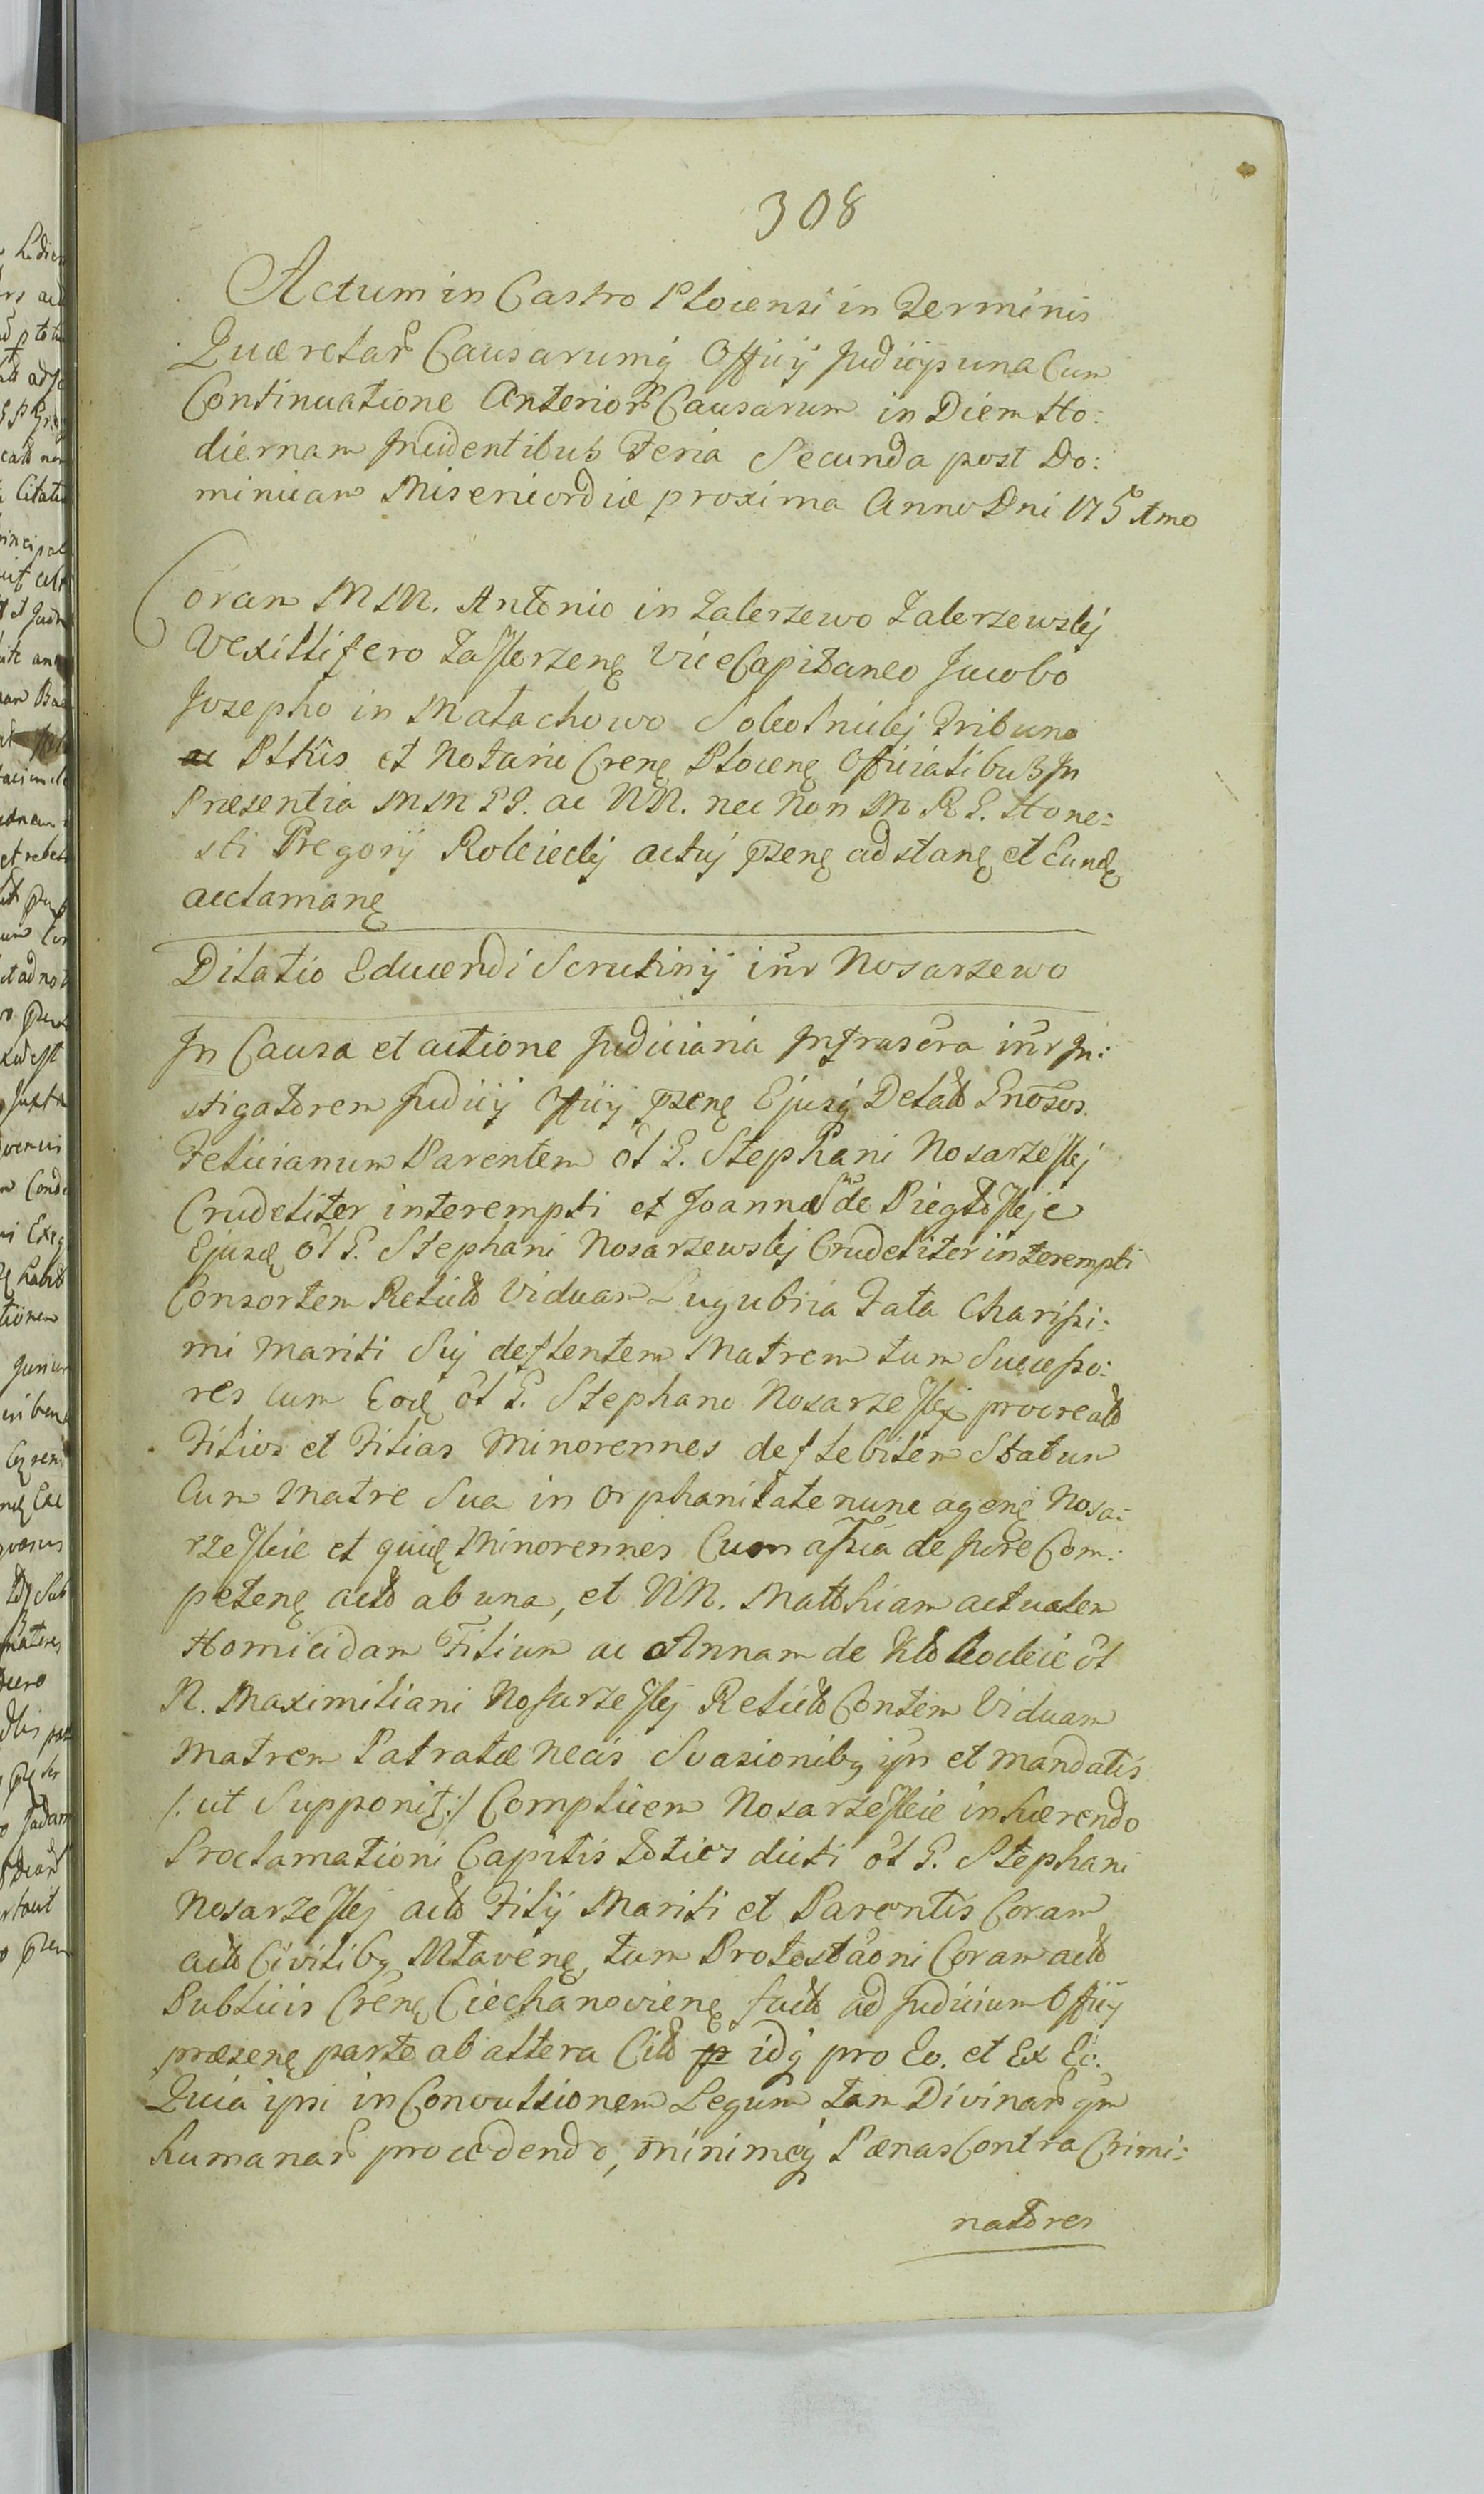 308
Actum in Castro Plocensi in Terminis
Quæretar Causarumq Officij Judicijs una Cum
Continuatione Anterior Causarum in Diem Ho:
diernam Incidentibus Feria Secunda post Do:
minicam Misericordiæ proxima Anno Dni 175 Imo
Coram MM. Antonio in Zakrzewo Zakrzewskj
Vexillifero Zaskrzenę ViceCapitaneo Jacobo
Josepho in Małachowo Sokolnickj Tribuno
Plttis et Notario Crenę Plocenę Officiatibus In
Præsentia MM GG. ac NN. nec Non M R G. Hone:
sti Gregorij Rokickj actuj pzenę adstanę et Eundę
acclamanę
Dilatio Educendi Scrutinij inr Nosarzewo
In Causa et actione Judiciaria Infrascra inr In:
stigatorem Judicij Officij pzenę Ejusq Delato Gnosos.
Felicianum Parentem ol G. Stephani Nosarzeskj
Crudeliter interempti et Joannæ de Piegtoskje
Ejusdę ol G. Stephani Nosarzewskj Crudeliter interempti
Consortem Relicto Viduam Lugubria Fata Charissi:
mi Mariti Suj deflentem Matrem tum Successo:
res Cum Eodę ol G. Stephano Nosarzeskj procreato
Filios et Filias Minorennes deflebilem Statum
Cum Matre Sua in Orphanitate nunc agenę Nosa:
rzeskie et quidę Minorennes Cum assia de Jure Com:
petenę acto ab una, et NN. Matthiam actualem
Homicidam Filium ac Annam de Kłokockie ol
N. Maximiliani Nosarzeskj Relicto Contem Viduam
Matrem Patratæ necis Suasionibq ijs et mandatis
/: ut Supponitę :/ Complicem Nosarzeskie inhærendo
Proclamationi Capitis toties dicti ol G. Stephani
Nosarzeskj acto Filij Mariti et Parentis Coram
acto Civilibq Mlavenę, tum Protestaoni Coram acto
Publicis Crenę Ciechanovienę facto ad Judicium Officij
præsenę parte ab altera Cito idq pro Eo. et Ex Eo.
Quia ipsi in Convulsionem Legum tam Divinar qm
humanar procedendo, minimeq Pœnas Contra Crimi:
natores